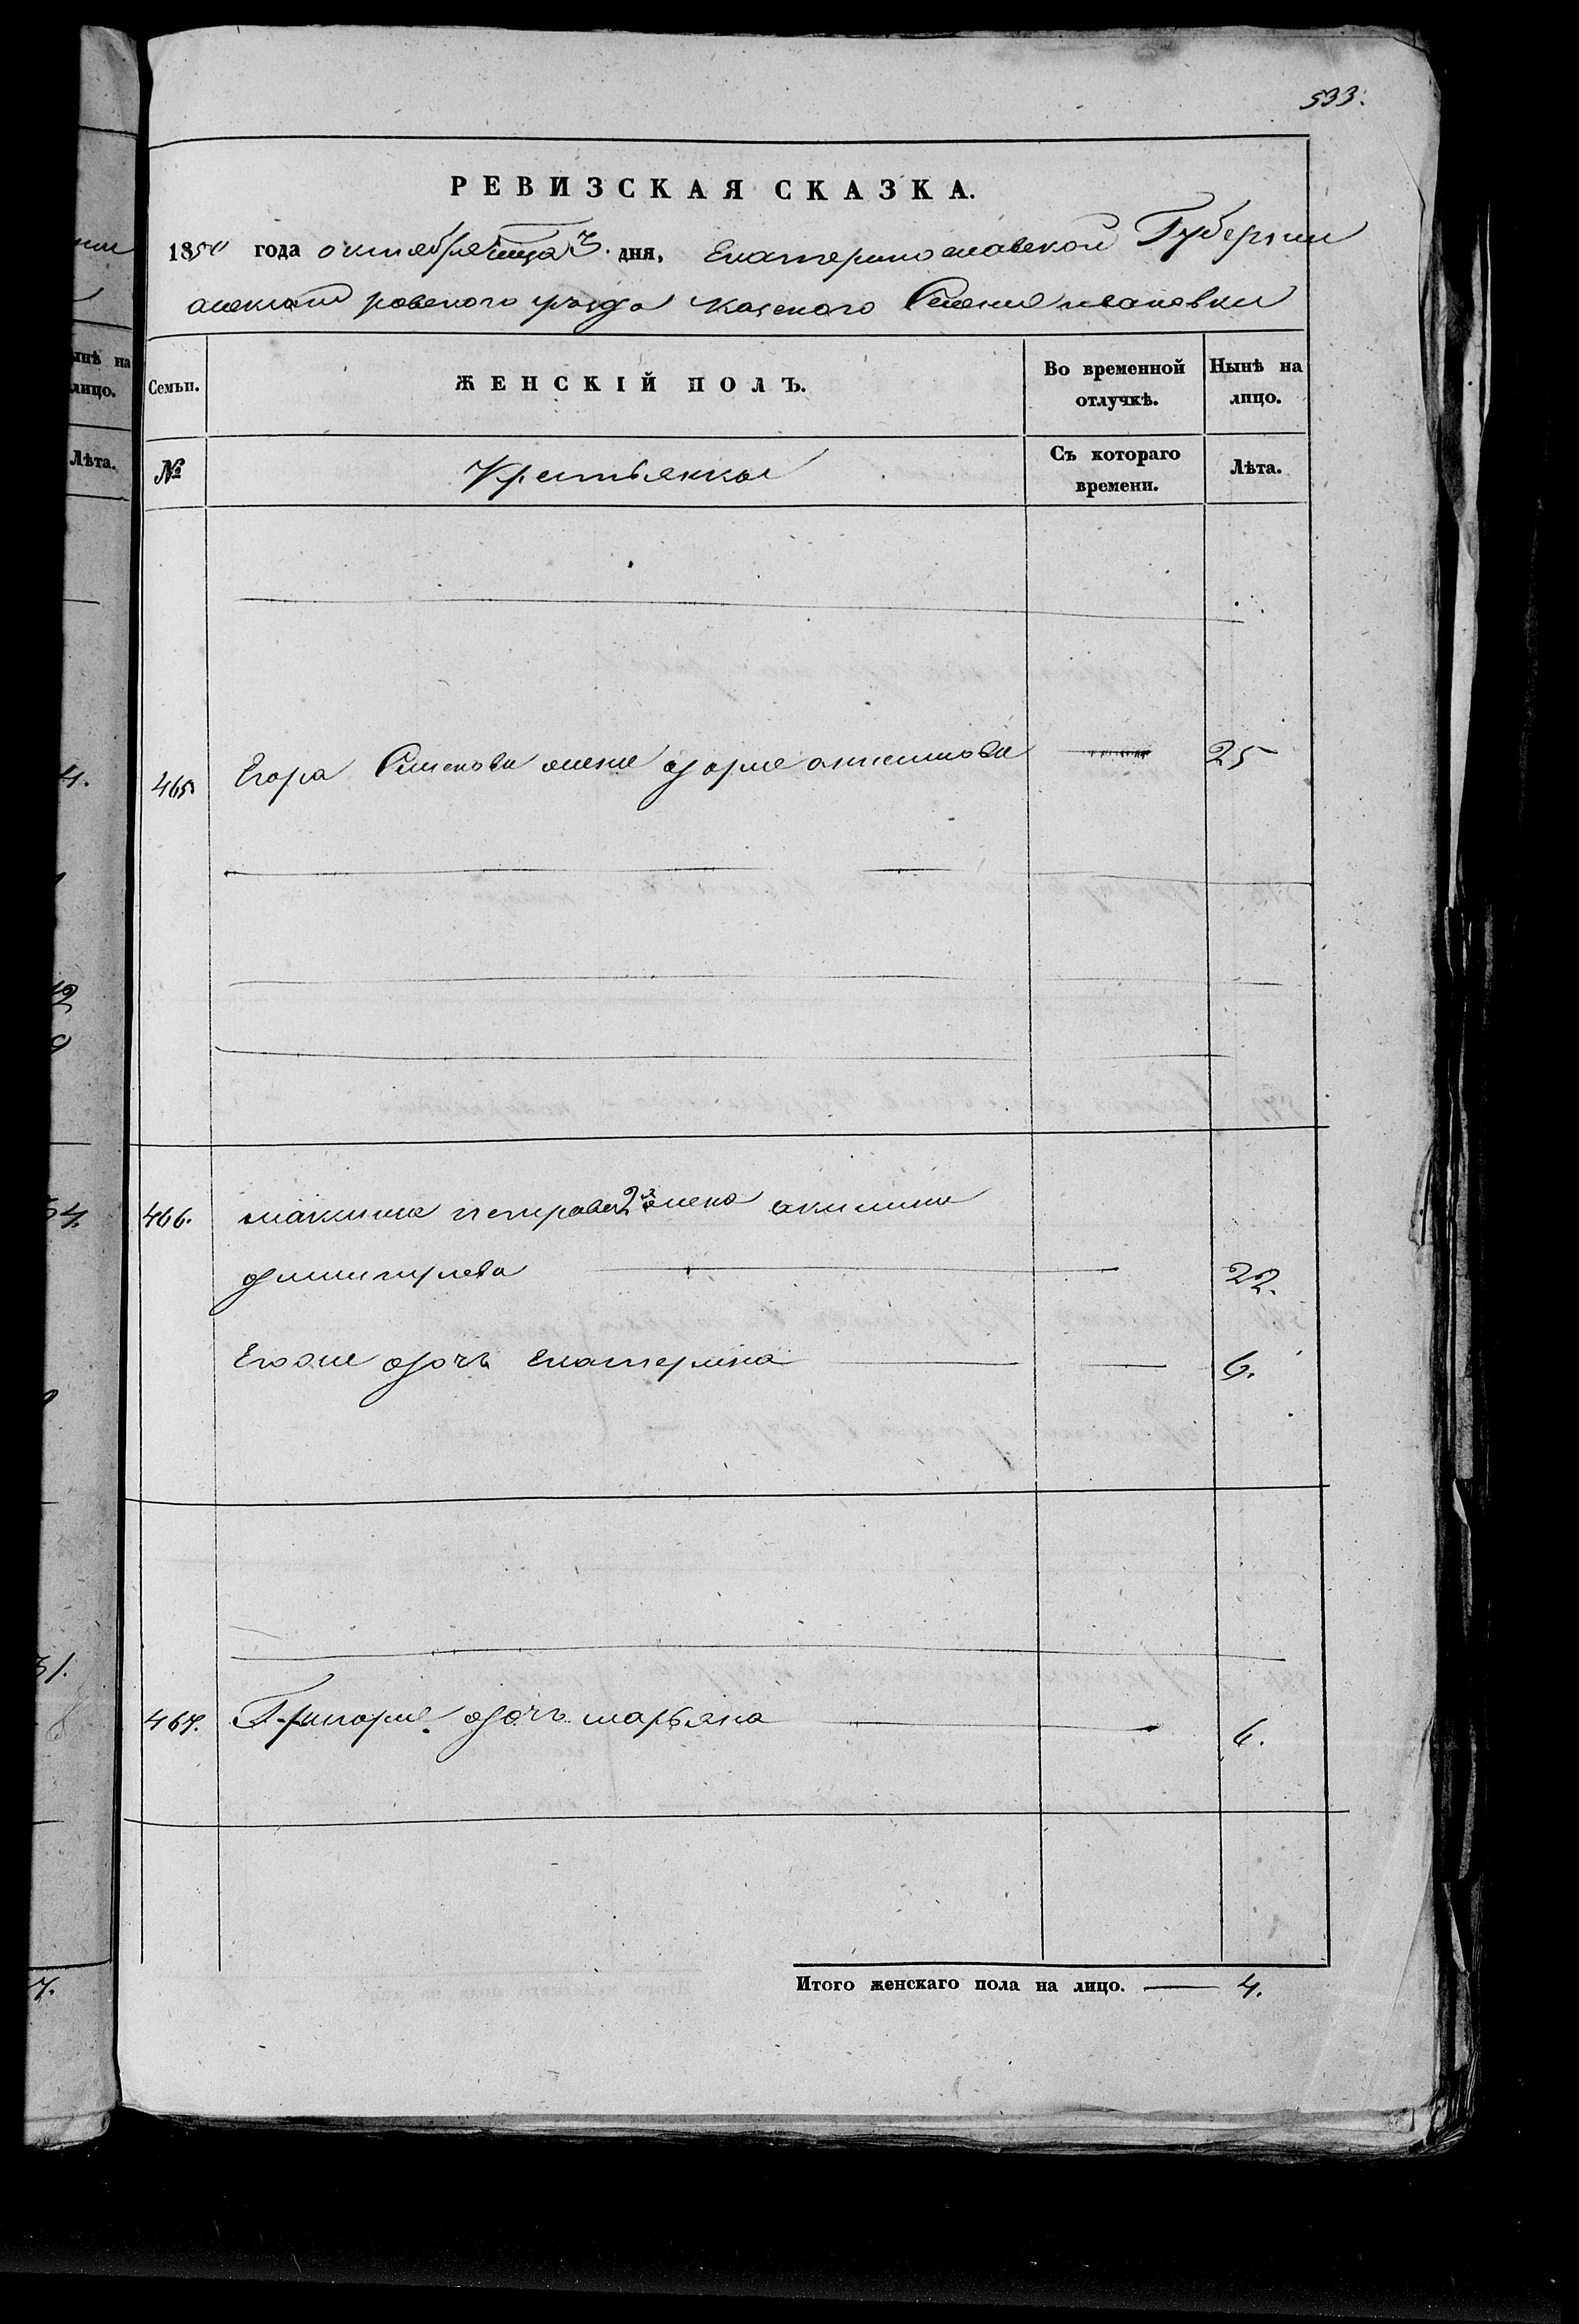 533.
РЕВИЗСКАЯ СКАЗКА.
1850 года октября месяца 3. дня, Екатеринославской Губернии
александровского уезда казеного Селения ивановки
Семьи. ЖЕНСКІЙ ПОЛЪ. Во временной отлучкѣ. Нынѣ на лицо.
№ Крестьянки Съ котораго времени. Лѣта.
465 Егора Семенова жена дарья 25
466. максима петрова 2я жена акилина
дмитриева 22.
Егоже дочь Екатерина 6.
467. Григорие дочь марьяна 6.
Итого женскаго пола на лицо. 4.
нынѣ на
лицо.
Лѣта.
4.
12
9
54.
31.
7.